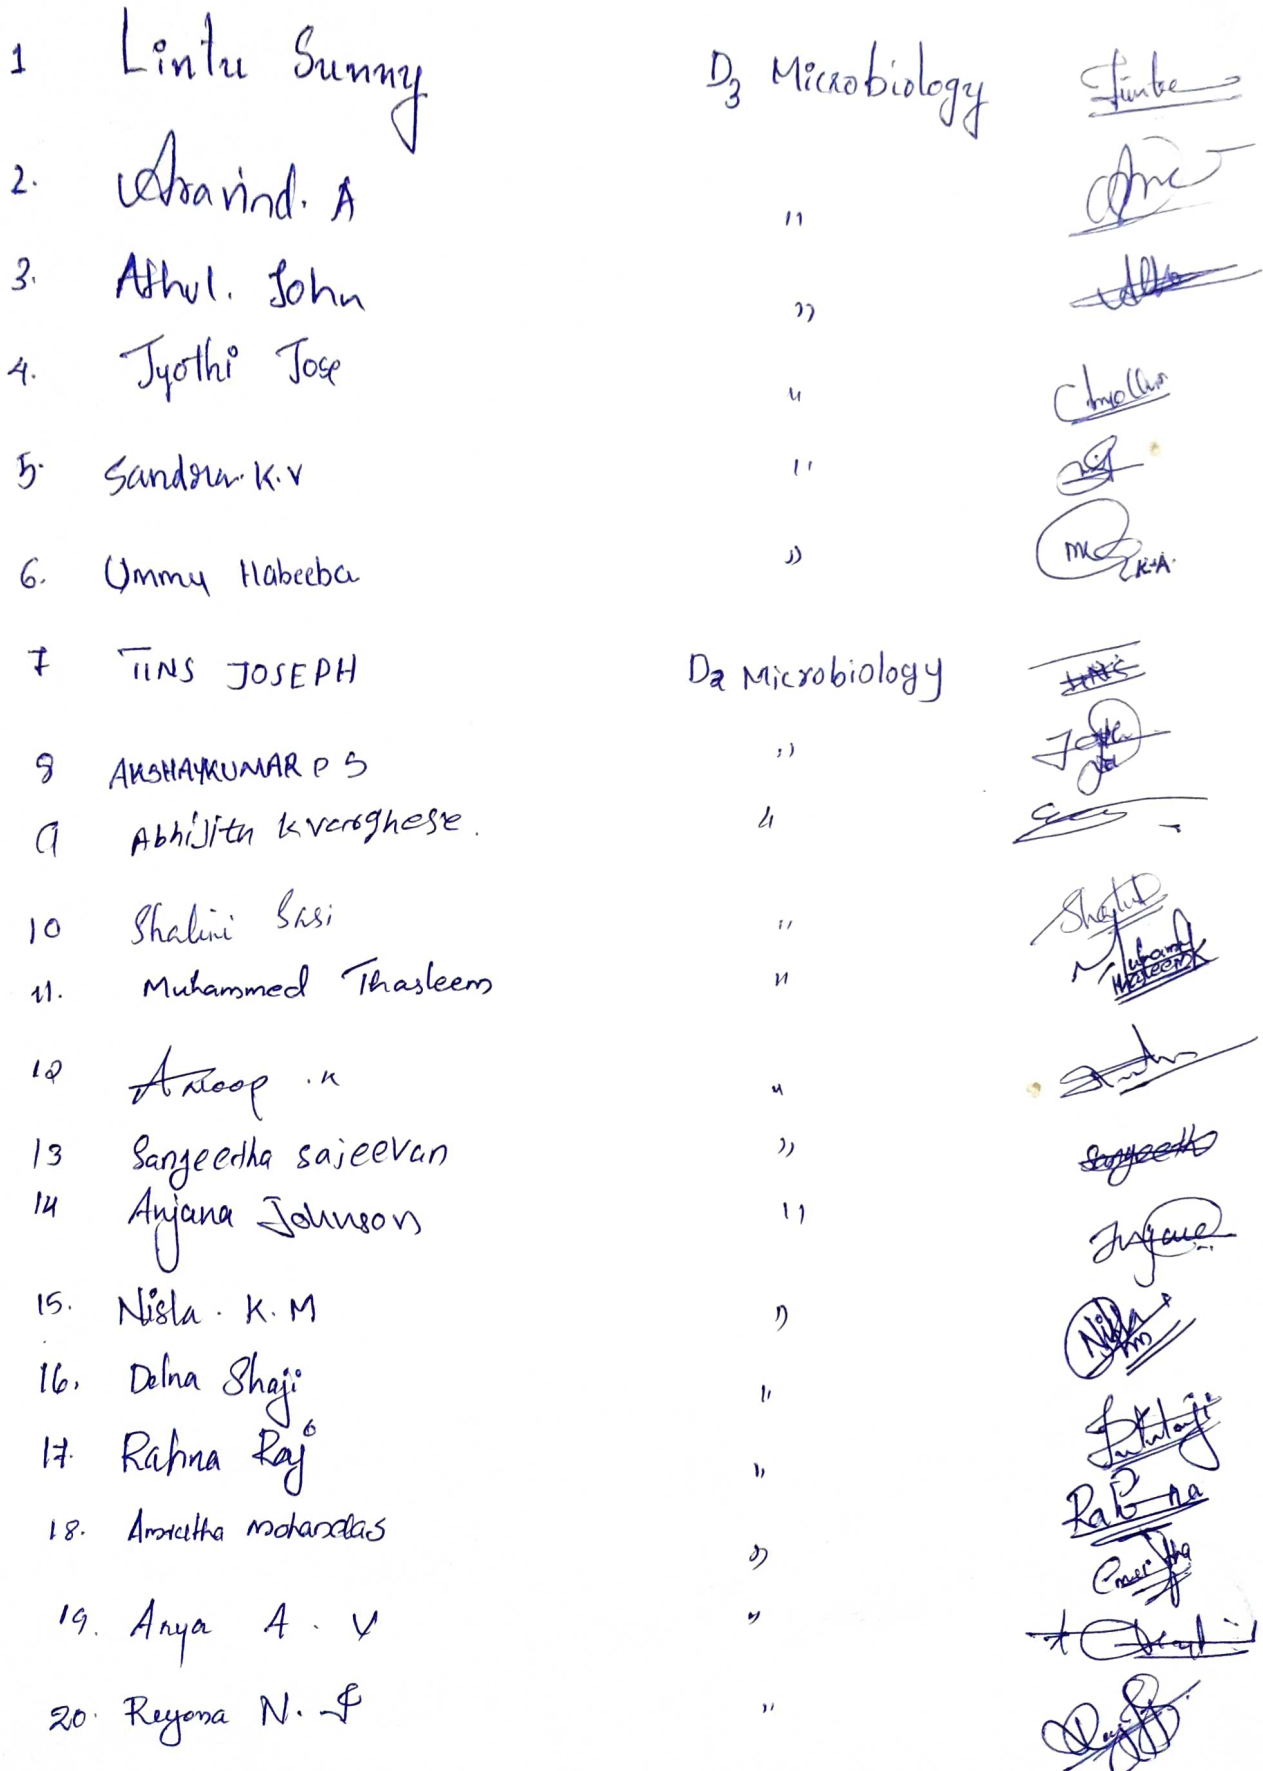 1 Lintu Sunny D3 Microbiology
2. Aravind. A "
3. Athul. John "
4. Jyothi Jose "
5. Sandra. K.V "
6. Ummu Habeeba " K.A.
7 TINS JOSEPH D2 Microbiology
8 AKSHAYKUMAR P S "
9 Abhijith K varghese. "
10 Shalini Sasi "
11. Muhammed Thasleem "
12 Anoop .K "
13 Sangeetha sajeevan " Sangeetha
14 Anjana Johnson "
15. Nisla. K.M "
16. Delna Shaji "
17. Rahna Raj "
18. Amrutha mohandas "
19. Anya A. V "
20. Reyona N.